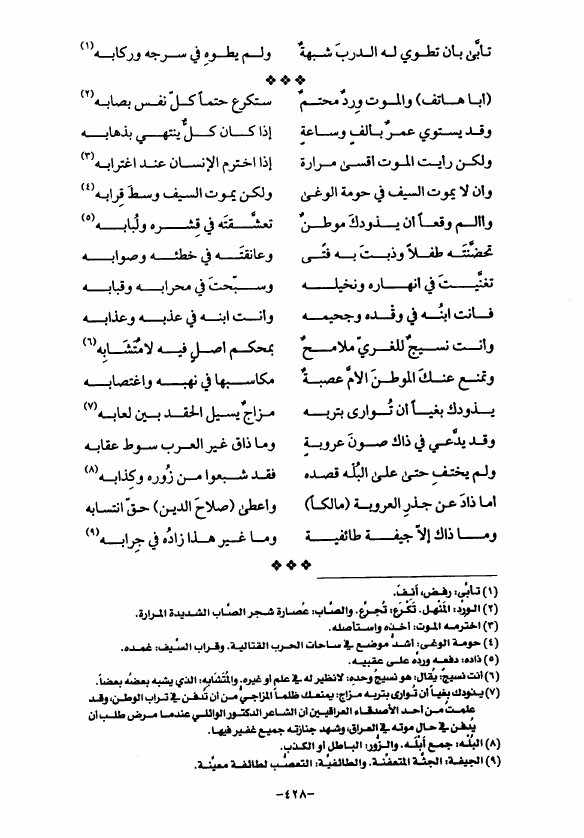 تأبَّىٰ بان تطوي له الدربَ شبهةٌ ولم يطوهِ في سرجه وركابه (١)
❖ ❖ ❖
(ابا هاتف) والموت وِردٌ محتمٌ ستكرع حتماً كلّ نفس بصابه (٢)
وقد يستوي عمرٌ بالفٍ وساعةٍ إذا كان كلٌّ ينتهي بذهابه
ولكن رأيت الموت أقسىٰ مرارة إذا اخترم الإنسان عند اغترابه (٣)
وان لا يموت السيف في حومة الوغىٰ ولكن يموت السيف وسطَ قِرابه (٤)
واالم وقعاً أن يذودكَ موطنٌ تعشَّقتَه في قشره ولُبابه (٥)
تحضنَّتَه طفلاً وذبتَ به فتًى وعانقتَه في خطئه وصوابه
تغنَّيتَ في انهاره ونخيله وسبّحتَ في محرابه وقبابه
فانت ابنُه في وقده وجحيمه وانت ابنه في عذبه وعذابه
وانت نسيجٌ للغريّ ملامحٌ بمحكم أصلٍ فيه لا مُتَشابِه (٦)
وتمنع عنكَ الموطنَ الامَّ عصبةٌ مكاسبها في نهبه واغتصابه
يذودك بغياً أن تُوارى بتربه مزاجٌ يسيل الحقد بين لعابه (٧)
وقد يدَّعي في ذاك صونَ عروبةٍ وما ذاق غير العرب سوط عقابه
ولم يختفِ حتىٰ علىٰ البُلْه قصده فقد شبعوا من زُوره وكِذابه (٨)
اما ذادَ عن جذرِ العروبة (مالكاً) وأعطىٰ (صلاحَ الدين) حقّ انتسابه
وما ذاك إلاّ جيفة طائفية وما غير هذا زادُه في جِرابه (٩)
❖ ❖ ❖
(١) تأبّى: رفض، أنِفَ.
(٢) الوِرْد: المَنْهل. تَكْرَع: تُجرَع. والصَّاب: عُصارة شجر الصَّاب الشديدة المرارة.
(٣) اخترمه الموت: أخذه واستأصله.
(٤) حومة الوغى: أشدُّ موضع في ساحات الحرب القتالية. وقراب السَّيف: غمده.
(٥) ذاده: دفعه وردَّه على عقبيه.
(٦) أنت نسيجٌ: يُقال: هو نسيجُ وحدِه: لا نظير له في علم أو غيره. والمُتَشابِه: الذي يشبه بعضه بعضاً.
(٧) يذودك بغياً أن تُوارى بتربه مزاج: يمنعك ظلماً المزاجيُّ من أن تُدفن في تراب الوطن، وقد
علمتُ من أحد الأصدقاء العراقيين أن الشاعر الدكتور الوائلي عندما مرض طلب أن
يُدفن في حال موته في العراق، وشهد جنازته جميع غفير فيها.
(٨) البُلْه: جمع أَبْلَه. والزُّور: الباطل أو الكذب.
(٩) الجيفة: الجثَّة المتعفنة. والطائفيَّة: التعصُّب لطائفة معيَّنة.
-٤٢٨-